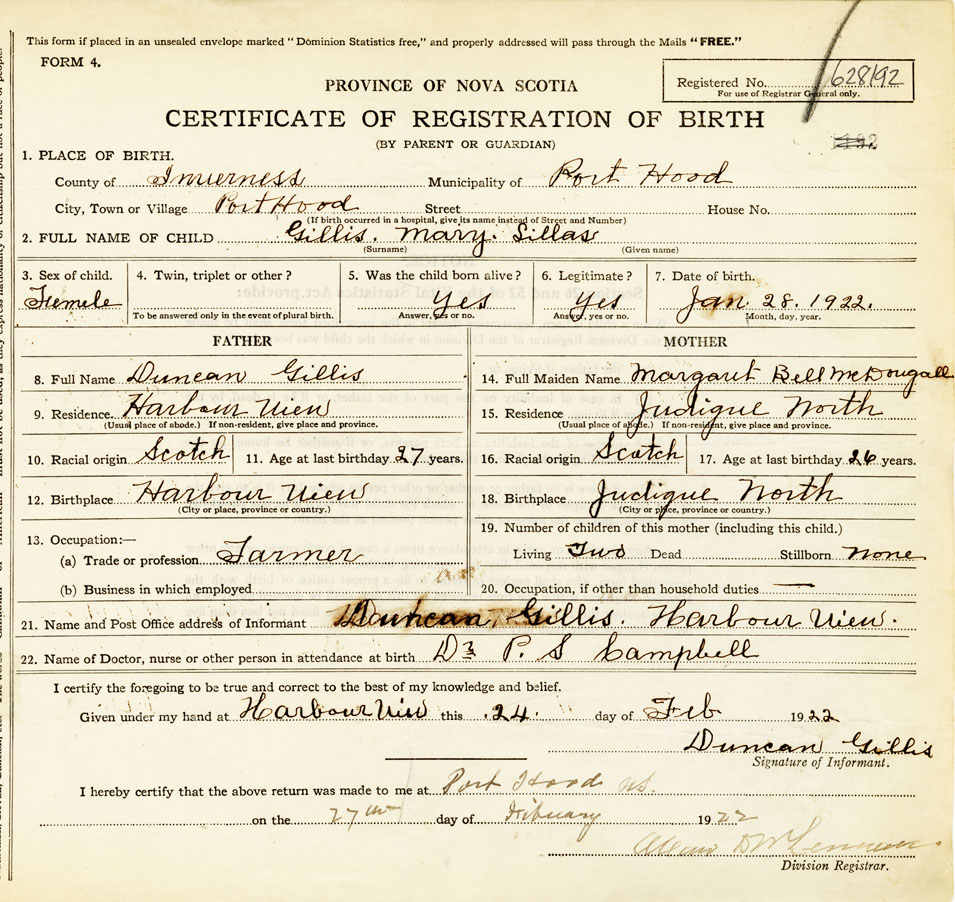 This form if placed in an unsealed envelope marked "Dominion Statistics free," and properly addressed will pass through the Mails "FREE."
FORM 4.
Registered No. 628192
For use of Registrar General only.
PROVINCE OF NOVA SCOTIA
CERTIFICATE OF REGISTRATION OF BIRTH
(BY PARENT OR GUARDIAN)
1. PLACE OF BIRTH.
County of Inverness Municipality of Port Hood
City, Town or Village Port Hood Street House No.
(If birth occurred in a hospital, give its name instead of Street and Number)
2. FULL NAME OF CHILD Gillis. Mary. Sillas
(Surname) (Given name)
3. Sex of child. 4. Twin, triplet or other? 5. Was the child born alive? 6. Legitimate? 7. Date of birth.
Femele Yes Yes Jan. 28. 1922.
To be answered only in the event of plural birth. Answer, yes or no. Answer, yes or no. Month, day, year.
FATHER MOTHER
8. Full Name Duncan Gillis 14. Full Maiden Name Margaret Bell McDougall
9. Residence. Harbour View 15. Residence Judique North
(Usual place of abode.) If non-resident, give place and province. (Usual place of abode.) If non-resident, give place and province.
10. Racial origin Scotch 11. Age at last birthday 27 years. 16. Racial origin Scotch 17. Age at last birthday 26 years.
12. Birthplace Harbour View 18. Birthplace Judique North
(City or place, province or country.) (City or place, province or country.)
13. Occupation:— 19. Number of children of this mother (including this child.)
(a) Trade or profession Farmer Living Two Dead Stillborn None
(b) Business in which employed 20. Occupation, if other than household duties —
21. Name and Post Office address of Informant Duncan Gillis. Harbour View.
22. Name of Doctor, nurse or other person in attendance at birth Dr P. S Campbell
I certify the foregoing to be true and correct to the best of my knowledge and belief.
Given under my hand at Harbour View this 24. day of Feb 1922
Duncan Gillis
Signature of Informant.
I hereby certify that the above return was made to me at Port Hood NS.
on the 27th day of February 1922
Division Registrar.